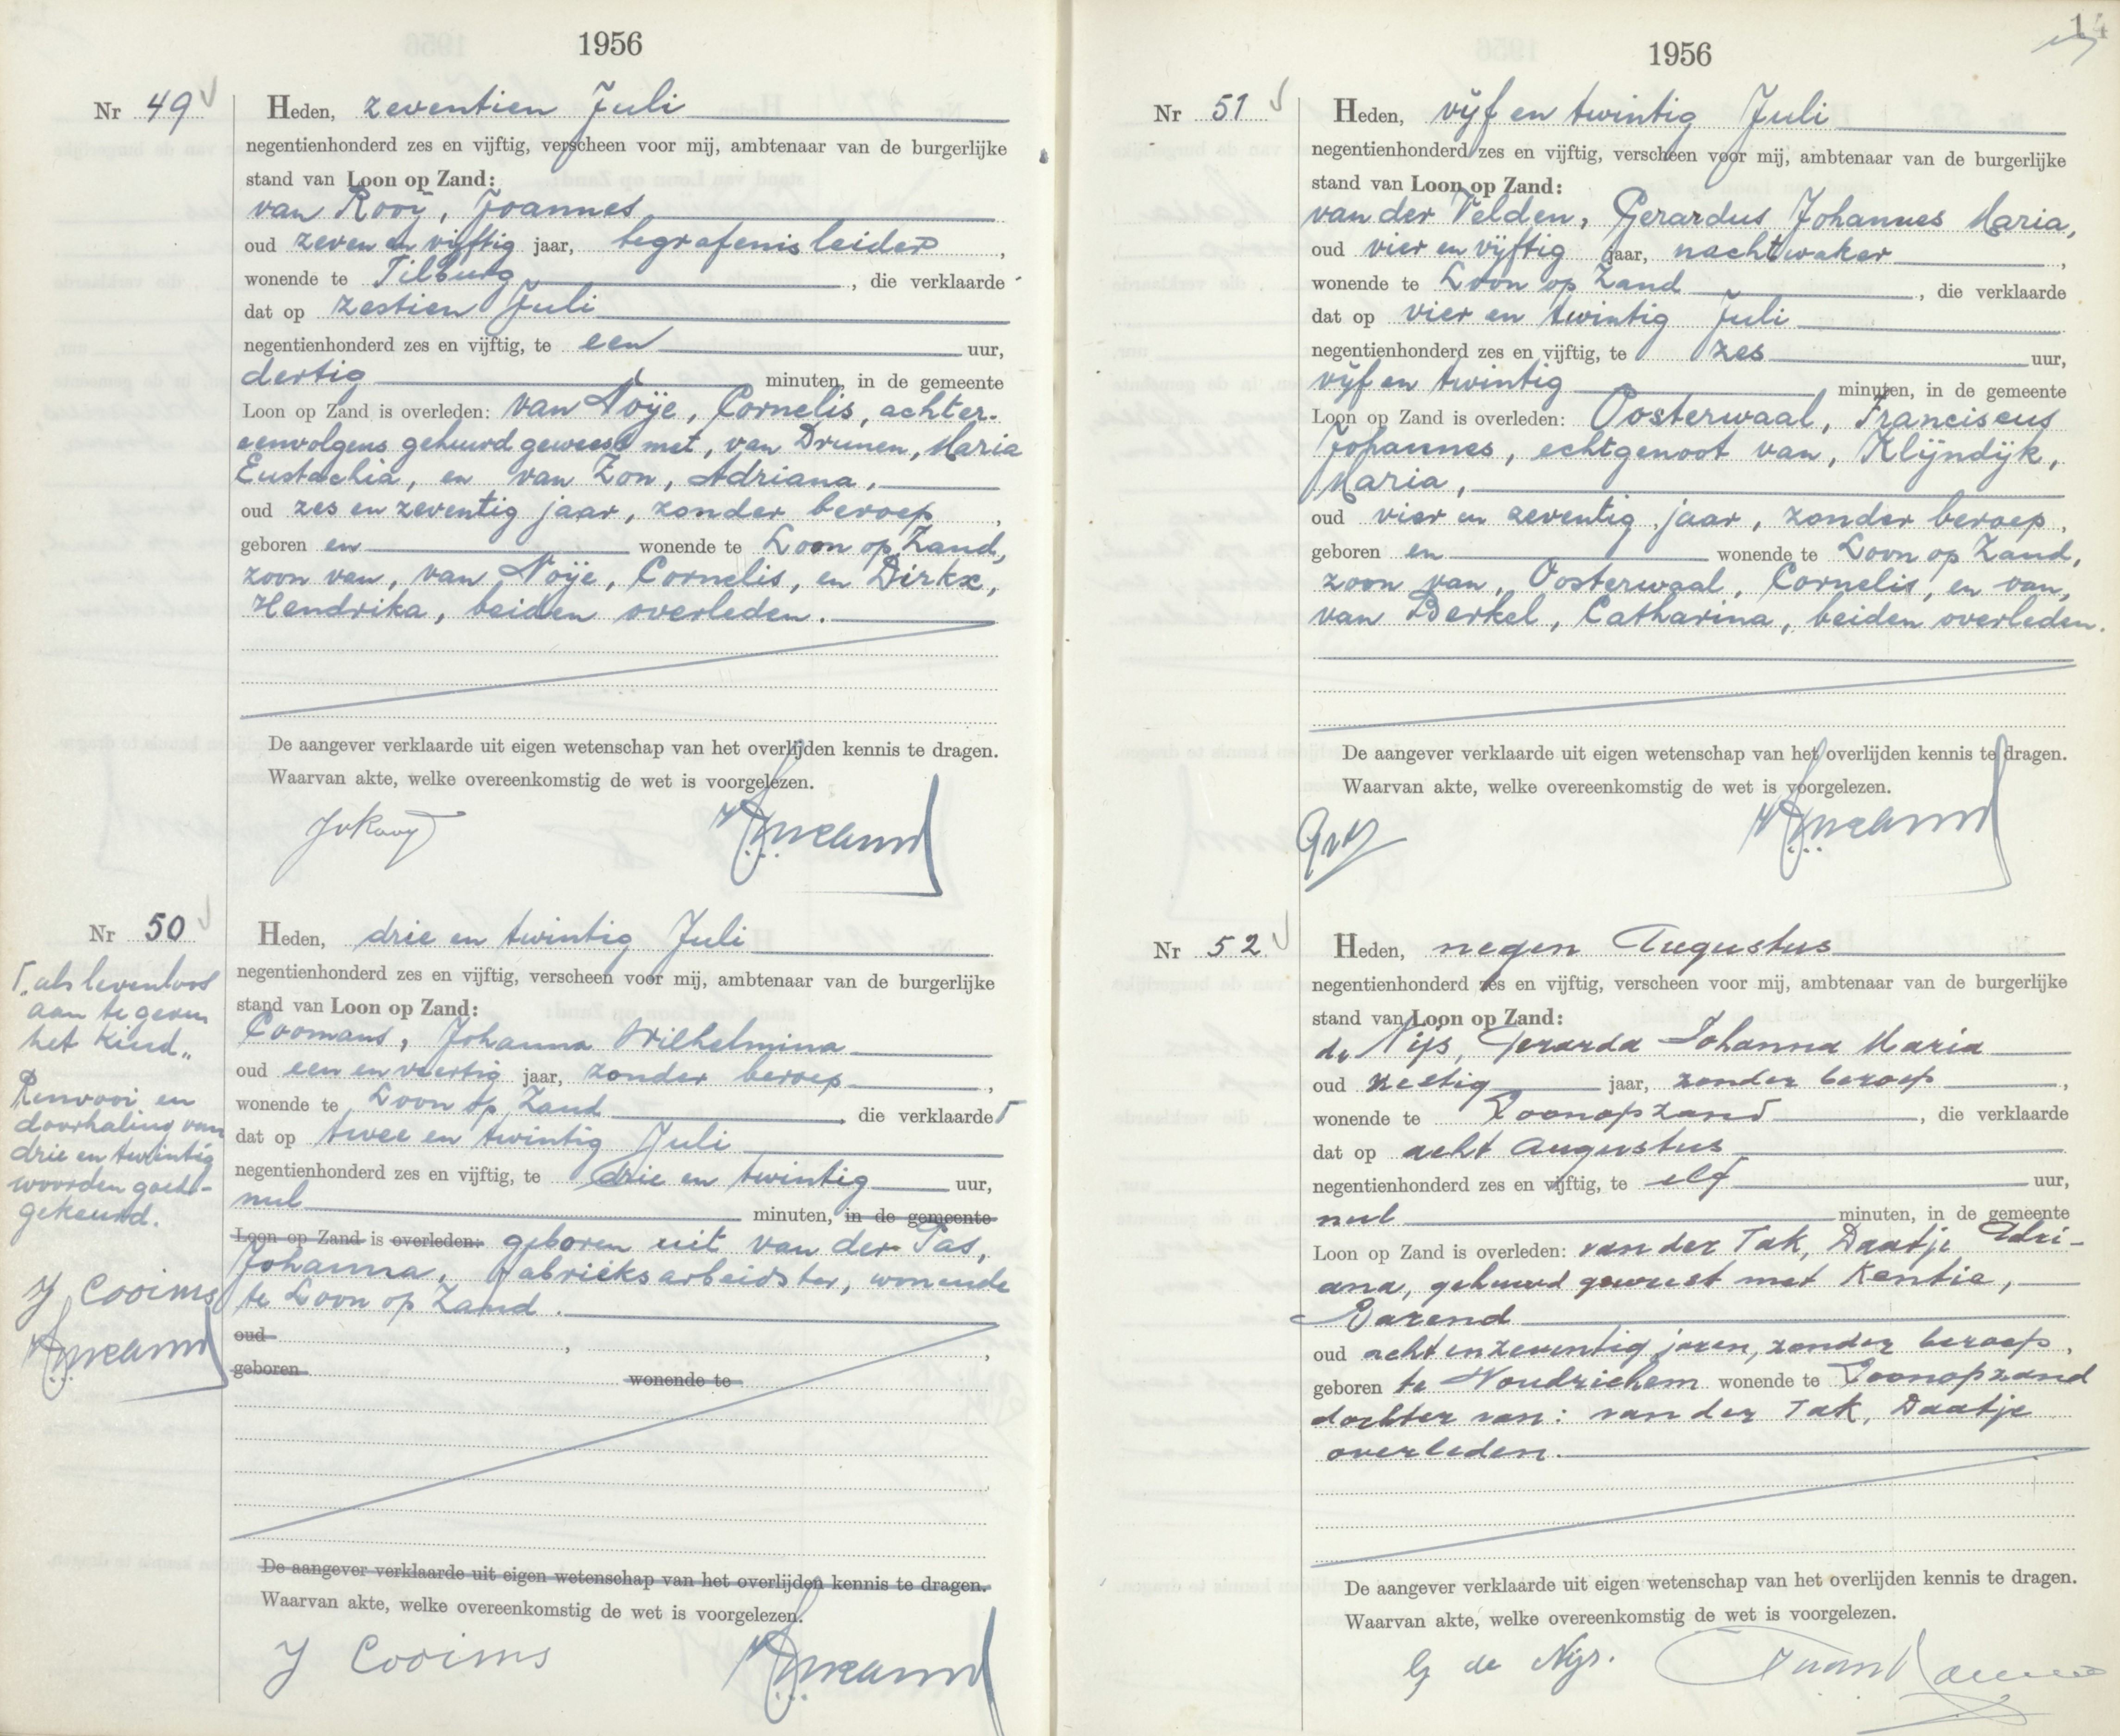 1956
Nr 49
Heden, zeventien Juli
negentienhonderd zes en vijftig, verscheen voor mij, ambtenaar van de burgerlijke
stand van Loon op Zand:
van Rooij, Joannes
oud zeven en vijftig jaar, begrafenisleider,
wonende te Tilburg, die verklaarde
dat op zestien Juli
negentienhonderd zes en vijftig, te een uur,
dertig minuten, in de gemeente
Loon op Zand is overleden: van Noije, Cornelis, achter-
eenvolgens gehuwd geweest met, van Drunen, Maria
Eustachia, en van Zon, Adriana,
oud zes en zeventig jaar, zonder beroep,
geboren en wonende te Loon op Zand,
zoon van, van Noije, Cornelis, en Dirkx,
Hendrika, beiden overleden.
De aangever verklaarde uit eigen wetenschap van het overlijden kennis te dragen.
Waarvan akte, welke overeenkomstig de wet is voorgelezen.
JvRooy
Nr 50
Heden, drie en twintig Juli
negentienhonderd zes en vijftig, verscheen voor mij, ambtenaar van de burgerlijke
stand van Loon op Zand:
Coomans, Johanna Wilhelmina
oud een en veertig jaar, zonder beroep,
wonende te Loon op Zand, die verklaarde Γ
dat op twee en twintig Juli
negentienhonderd zes en vijftig, te drie en twintig uur,
nul minuten, in de gemeente
Loon op Zand is overleden: geboren uit van der Pas,
Johanna, fabrieksarbeidster, wonende
te Loon op Zand.
oud ,
geboren wonende te
De aangever verklaarde uit eigen wetenschap van het overlijden kennis te dragen.
Waarvan akte, welke overeenkomstig de wet is voorgelezen.
J Cooims
Γ "als levenloos
aan te geven
het kind"
Renvooi en
doorhaling van
drie en twintig
woorden goed-
gekeurd.
J Cooims
14
1956
Nr 51
Heden, vijf en twintig Juli
negentienhonderd zes en vijftig, verscheen voor mij, ambtenaar van de burgerlijke
stand van Loon op Zand:
van der Velden, Gerardus Johannes Maria,
oud vier en vijftig jaar, nachtwaker,
wonende te Loon op Zand, die verklaarde
dat op vier en twintig Juli
negentienhonderd zes en vijftig, te zes uur,
vijf en twintig minuten, in de gemeente
Loon op Zand is overleden: Oosterwaal, Franciscus
Johannes, echtgenoot van, Klijndijk,
Maria,
oud vier en zeventig jaar, zonder beroep,
geboren en wonende te Loon op Zand,
zoon van, Oosterwaal, Cornelis, en van,
van Berkel, Catharina, beiden overleden.
De aangever verklaarde uit eigen wetenschap van het overlijden kennis te dragen.
Waarvan akte, welke overeenkomstig de wet is voorgelezen.
Nr 52
Heden, negen Augustus
negentienhonderd zes en vijftig, verscheen voor mij, ambtenaar van de burgerlijke
stand van Loon op Zand:
de Nijs, Gerarda Johanna Maria
oud zestig jaar, zonder beroep,
wonende te Loonopzand, die verklaarde
dat op acht augustus
negentienhonderd zes en vijftig, te elf uur,
nul minuten, in de gemeente
Loon op Zand is overleden: van der Tak, Daatje Adri-
ana, gehuwd geweest met Kentie,
Barend
oud acht en zeventig jaren, zonder beroep,
geboren te Woudrichem wonende te Loonopzand
dochter van: van der Tak, Daatje
overleden.
De aangever verklaarde uit eigen wetenschap van het overlijden kennis te dragen.
Waarvan akte, welke overeenkomstig de wet is voorgelezen.
G de Nijs.